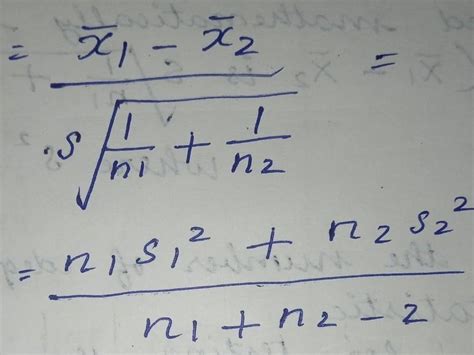 = x̄1 − x̄2 / s√(1/n1 + 1/n2) =
= n1 s1² + n2 s2² / n1 + n2 − 2